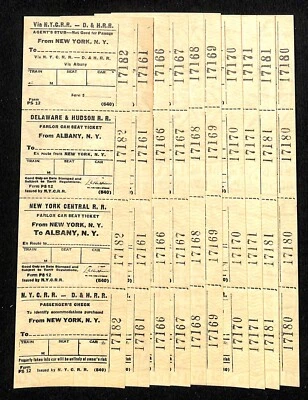 Via N.Y.C.R.R. — D. & H.R.R.
AGENT'S STUB—Not Good for Passage
From NEW YORK, N. Y.
To
Via N. Y. C. R. R. — D. & H. R. R.
Via Albany
TRAIN SEAT CAR
Form 2
Form
PS 12 (S40)
17182 17161 17166 17168 17169 17170 17171 17180
DELAWARE & HUDSON R. R.
PARLOR CAR SEAT TICKET
From ALBANY, N. Y.
To
En Route from NEW YORK, N. Y.
TRAIN SEAT CAR
Good Only on Date Stamped and
Subject to Tariff Regulations.
Form PS 12
Issued by N.Y.C.R.R. (S40)
17182 17161 17166 17168 17169 17170 17171 17180
NEW YORK CENTRAL R. R.
PARLOR CAR SEAT TICKET
From NEW YORK, N. Y.
To ALBANY, N. Y.
En Route to
TRAIN SEAT CAR
Good Only on Date Stamped and
Subject to Tariff Regulations.
Form PS 12
Issued by N.Y.C.R.R. (S40)
17182 17161 17166 17168 17169 17170 17171 17180
N. Y. C. R. R. — D. & H. R. R.
PASSENGER'S CHECK
To identify accommodations purchased
From NEW YORK, N. Y.
To
TRAIN SEAT CAR
Property taken into car will be entirely at owner's risk
Form
PS 12 (S40)
17182 17161 17166 17168 17169 17170 17171 17180